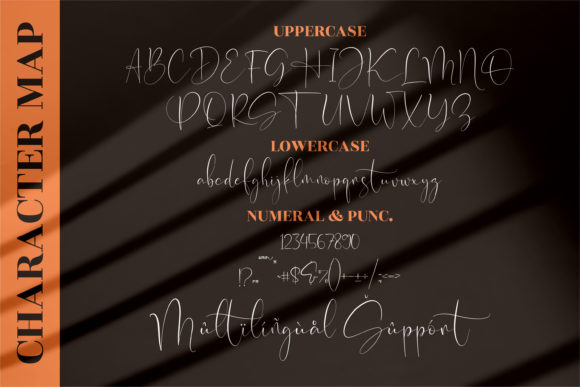 CHARACTER MAP
UPPERCASE
ABCDEFGHIJKLMNO
PQRSTUVWXYZ
LOWERCASE
abcdefghijklmnopqrstuvwxyz
NUMERAL & PUNC.
1234567890
Mûltïlíñgùål Šüppórt